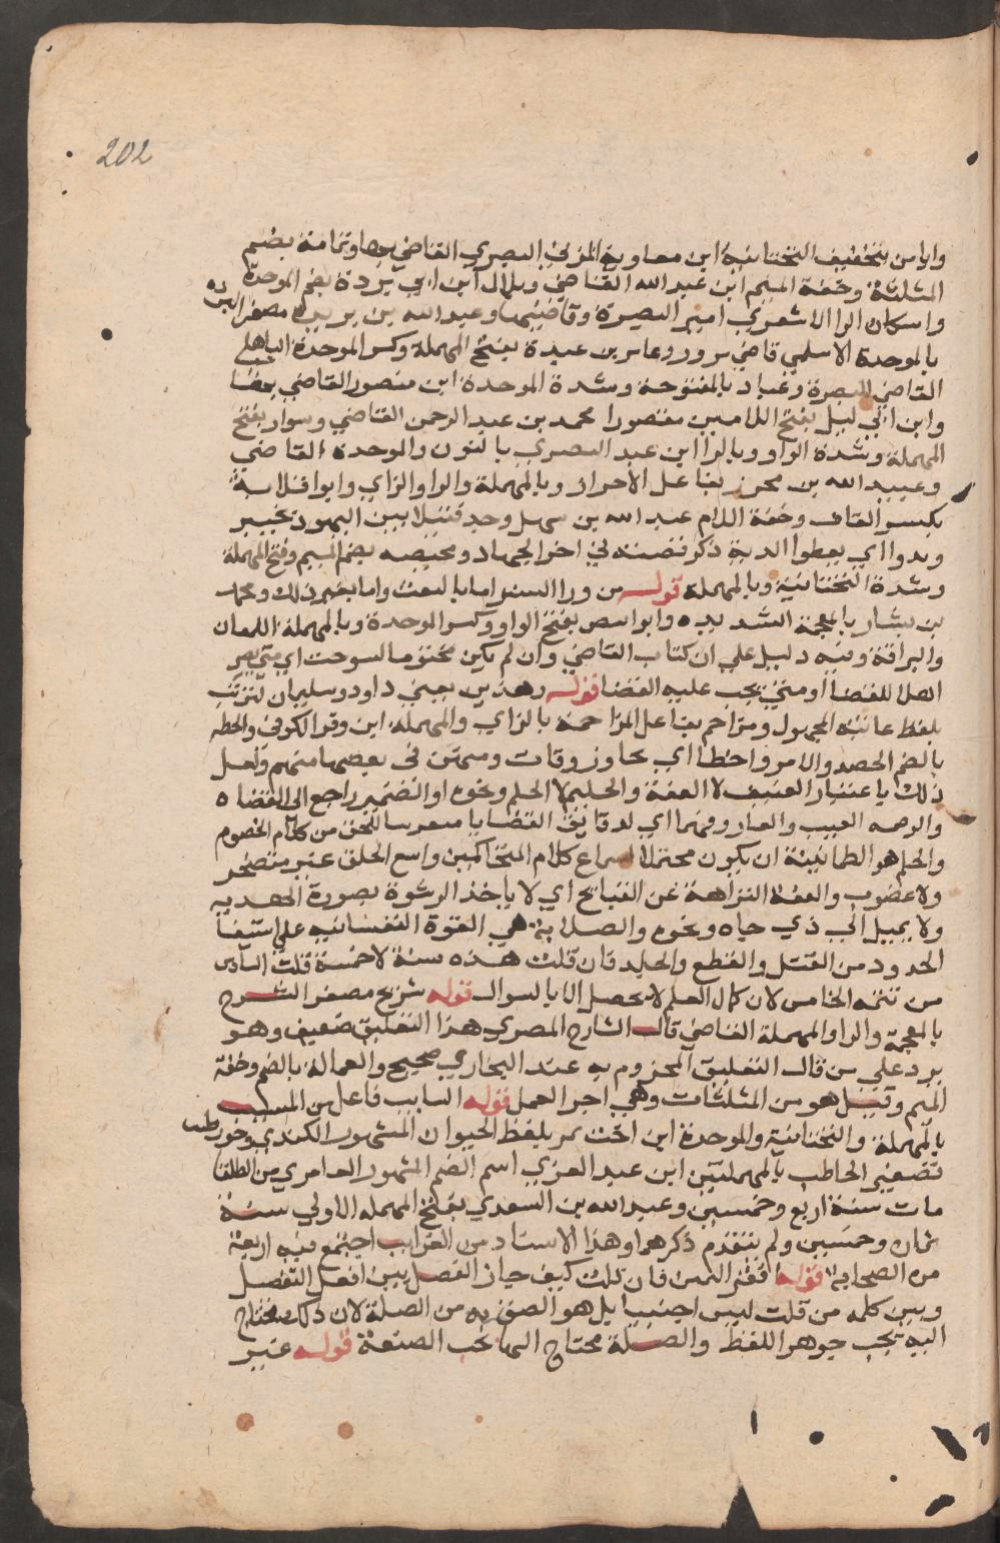 202
واياس بتخفيف التحتانية ابن معاوية المزني البصري القاضي بها وثمامة بضم
المثلثة وخفة الميم ابن عبد الله القاضي وبلال ابن ابي بردة بضم الموحدة
واسكان الرا الاشعري امير البصرة وقاضيها وعبد الله بن بريدة مصغر البردة
بالموحدة الاسلمي قاضي مرو وعامر بن عبدة بفتح المهملة وكسر الموحدة الباهلي
القاضي للبصرة وعباد بالمفتوحة وشدة الموحدة ابن منصور القاضي بها
وابن ابي ليلى بفتح اللامين مقصورا محمد بن عبد الرحمن القاضي وسوار بفتح
المهملة وشدة الواو وبالرا ابن عبد البصري بالنون والموحدة القاضي
وعبيد الله بن محرز بفاعل الاحراز وبالمهملة والرا والزاي وابو قلابة
بكسر القاف وخفة اللام عبد الله بن سهل وجد قتيلا بين اليهود بخيبر
ويدوا اي يعطوا الدية ذكر قضيته في اخر الجهاد ومحيصة بضم الميم وفتح المهملة
وشدة التحتانية وبالمهملة قوله من ورا الستر اما بالنعت واما بغير ذلك ومحمد
بن بشار بالمعجمة الشديدة وابواسص بفتح الواو وكسر الموحدة وبالمهملة اللمعان
والبراقة وفيه دليل على ان كتاب القاضي وان لم يكن مختوما لسوحت اي متي يصير
اهلا للقضا او متى يجب عليه القضا قوله وهذين يعني داود وسليمان لتزتب
بلفظ غائبه المجهول ومزاحم بفاعل المزاحمة بالزاي والمهملة ابن زفر الكوفي والخطه
بالضم الخصه والامر واخطا اي تجاوز وفات وسمتن في بعضها منهم ولعل
ذلك باعتبار العفيف لا العفة والحليم لا الحلم ونحوه او الضمير راجع الى القضاة
والوصمه العيب والعار وفهما اي لدقايق القضايا متفرسا للحق من كلام الخصوم
والحلم هو الطمانينة ان يكون محتملا لسماع كلام المتحاكمين واسع الخلق غير متضجر
ولا غضوب والعفة النزاهة عن القبايح اي لا ياخذ الرشوة بصورة الهديه
ولا يميل الى ذي جاه ونحوه والصلابة هي القوة النفسانيه على استيفا
الحدود من القتل والقطع والجلد فان قلت هذه ستة لا خمسة قلت السادس
من تتمة الخامس لان كمال العلم لا يحصل الا بالسوال قوله شريح مصغر الشرح
بالمعجمة والرا والمهملة القاضي قال الشارح المصري هذا التعليق ضعيف وهو
يرد علي من قال التعليق المجزوم به عند البخاري صحيح والعمالة بالضم وخفة
الميم وقيل هو من المثلثات وهي اجر العمل قوله السايب فاعل من السيب
بالمهملة والتحتانية والموحدة ابن اخت نمر بلفظ الحيوان المشهور الكندي وحويطب
تصغير الحاطب بالمهملتين ابن عبد العزي اسم الصنم المشهور العامري من الطلقا
مات سنة اربع وخمسين وعبد الله بن السعدي بفتح المهمله الاولي سنة
ثمان وخمسين ولم يتقدم ذكرهما وهذا الاسناد من الغرايب اجتمع فيه اربعة
من الصحابة قوله افقر اليه من فان قلت كيف جاز الفصل بين افعل التفضيل
وبين كلمه من قلت ليس اجنبيا بل هو الصق به من الصلة لان ذلك محتاج
اليه بحسب جوهر اللفظ والصلة محتاج اليها بحسب الصنعة قوله غير